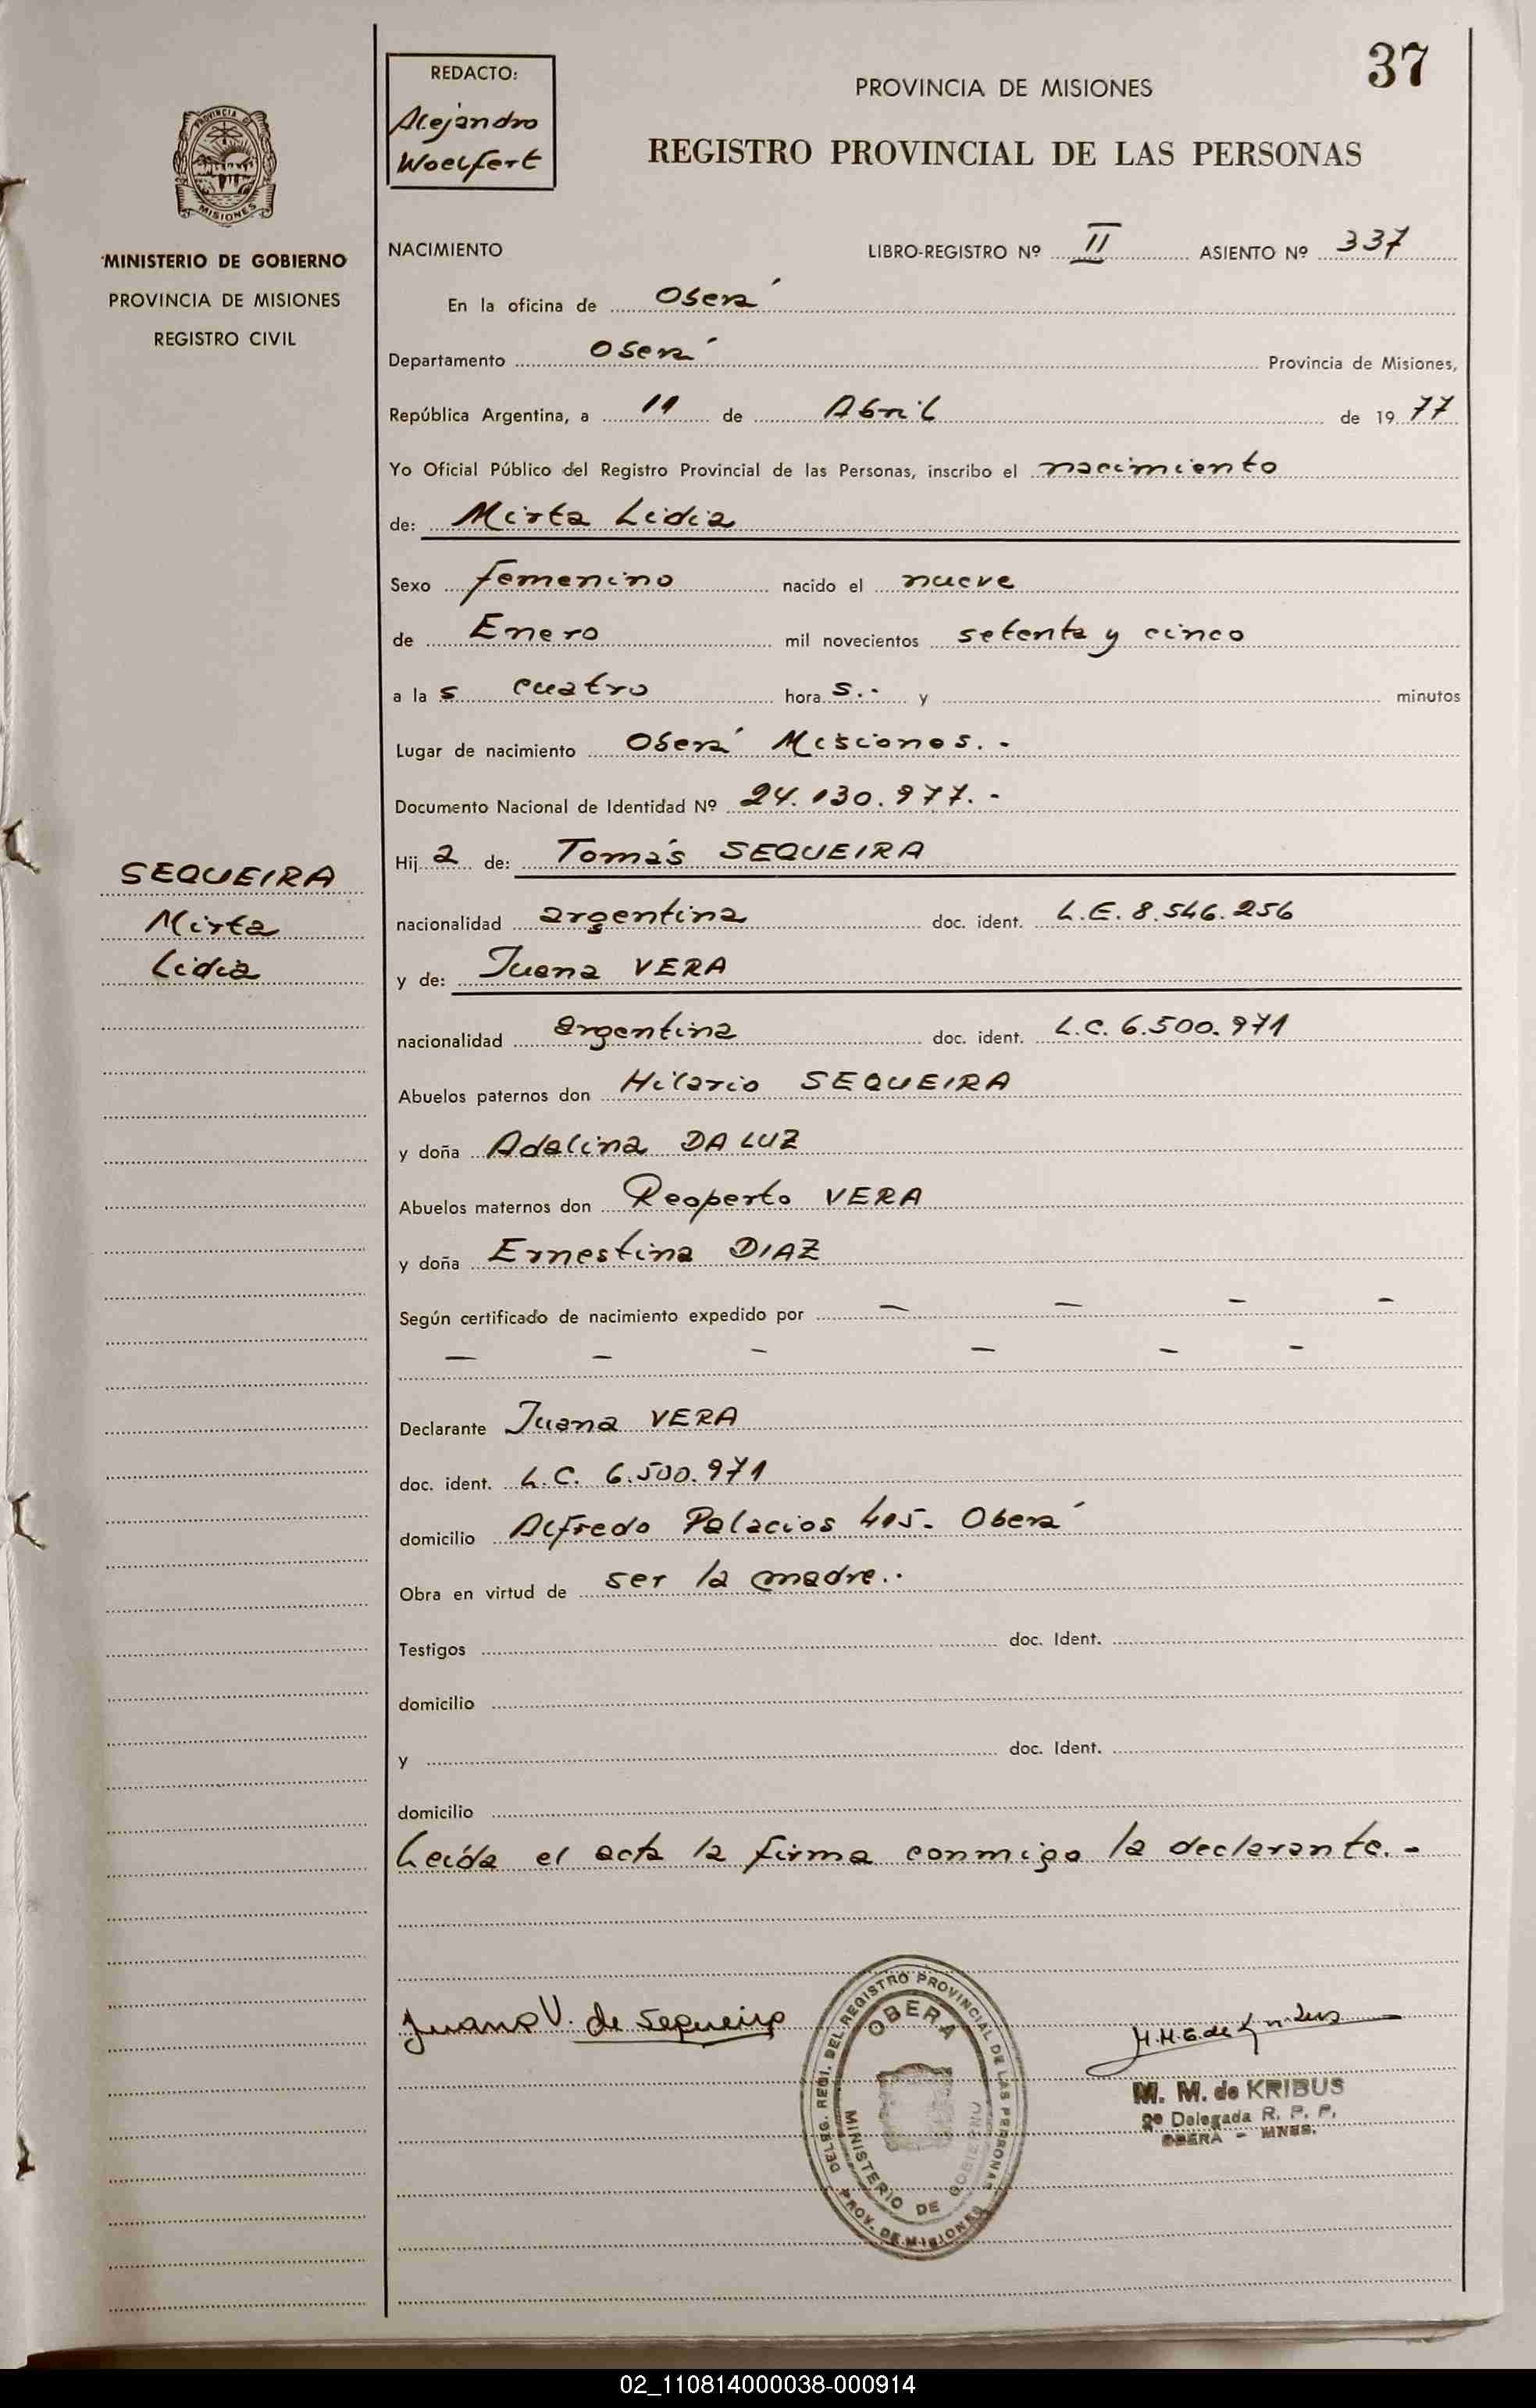 37
REDACTO:
Alejandro
Woelfert
PROVINCIA DE MISIONES
REGISTRO PROVINCIAL DE LAS PERSONAS
PROVINCIA DE
MISIONES
MINISTERIO DE GOBIERNO
PROVINCIA DE MISIONES
REGISTRO CIVIL
NACIMIENTO LIBRO-REGISTRO Nº II ASIENTO Nº 337
En la oficina de Oberá
Departamento Oberá Provincia de Misiones,
República Argentina, a 11 de Abril de 1977
Yo Oficial Público del Registro Provincial de las Personas, inscribo el nacimiento
de: Mirta Lidia
Sexo femenino nacido el nueve
de Enero mil novecientos setenta y cinco
a las cuatro horas.- y minutos
Lugar de nacimiento Oberá Misiones.-
Documento Nacional de Identidad Nº 24.130.977.-
Hija de: Tomás SEQUEIRA
SEQUEIRA
Mirta
Lidia
nacionalidad argentina doc. ident. L.E. 8.546.256
y de: Juana VERA
nacionalidad argentina doc. ident. L.C. 6.500.971
Abuelos paternos don Hilario SEQUEIRA
y doña Adelina DA LUZ
Abuelos maternos don Roperto VERA
y doña Ernestina DIAZ
Según certificado de nacimiento expedido por — — — —
— — — — — —
Declarante Juana VERA
doc. ident. L.C. 6.500.971
domicilio Alfredo Palacios 415- Oberá
Obra en virtud de ser la madre.-
Testigos doc. Ident.
domicilio
y doc. Ident.
domicilio
Leída el acta la firma conmigo la declarante.-
Juana V. de Sequeira
DELEG. REGI. DEL REGISTRO PROVINCIAL DE LAS PERSONAS
OBERA
MINISTERIO DE GOBIERNO
PROV. DE MISIONES
M. M. de KRIBUS
2º Delegada R. P. P.
OBERA - MNES.
02_110814000038-000914